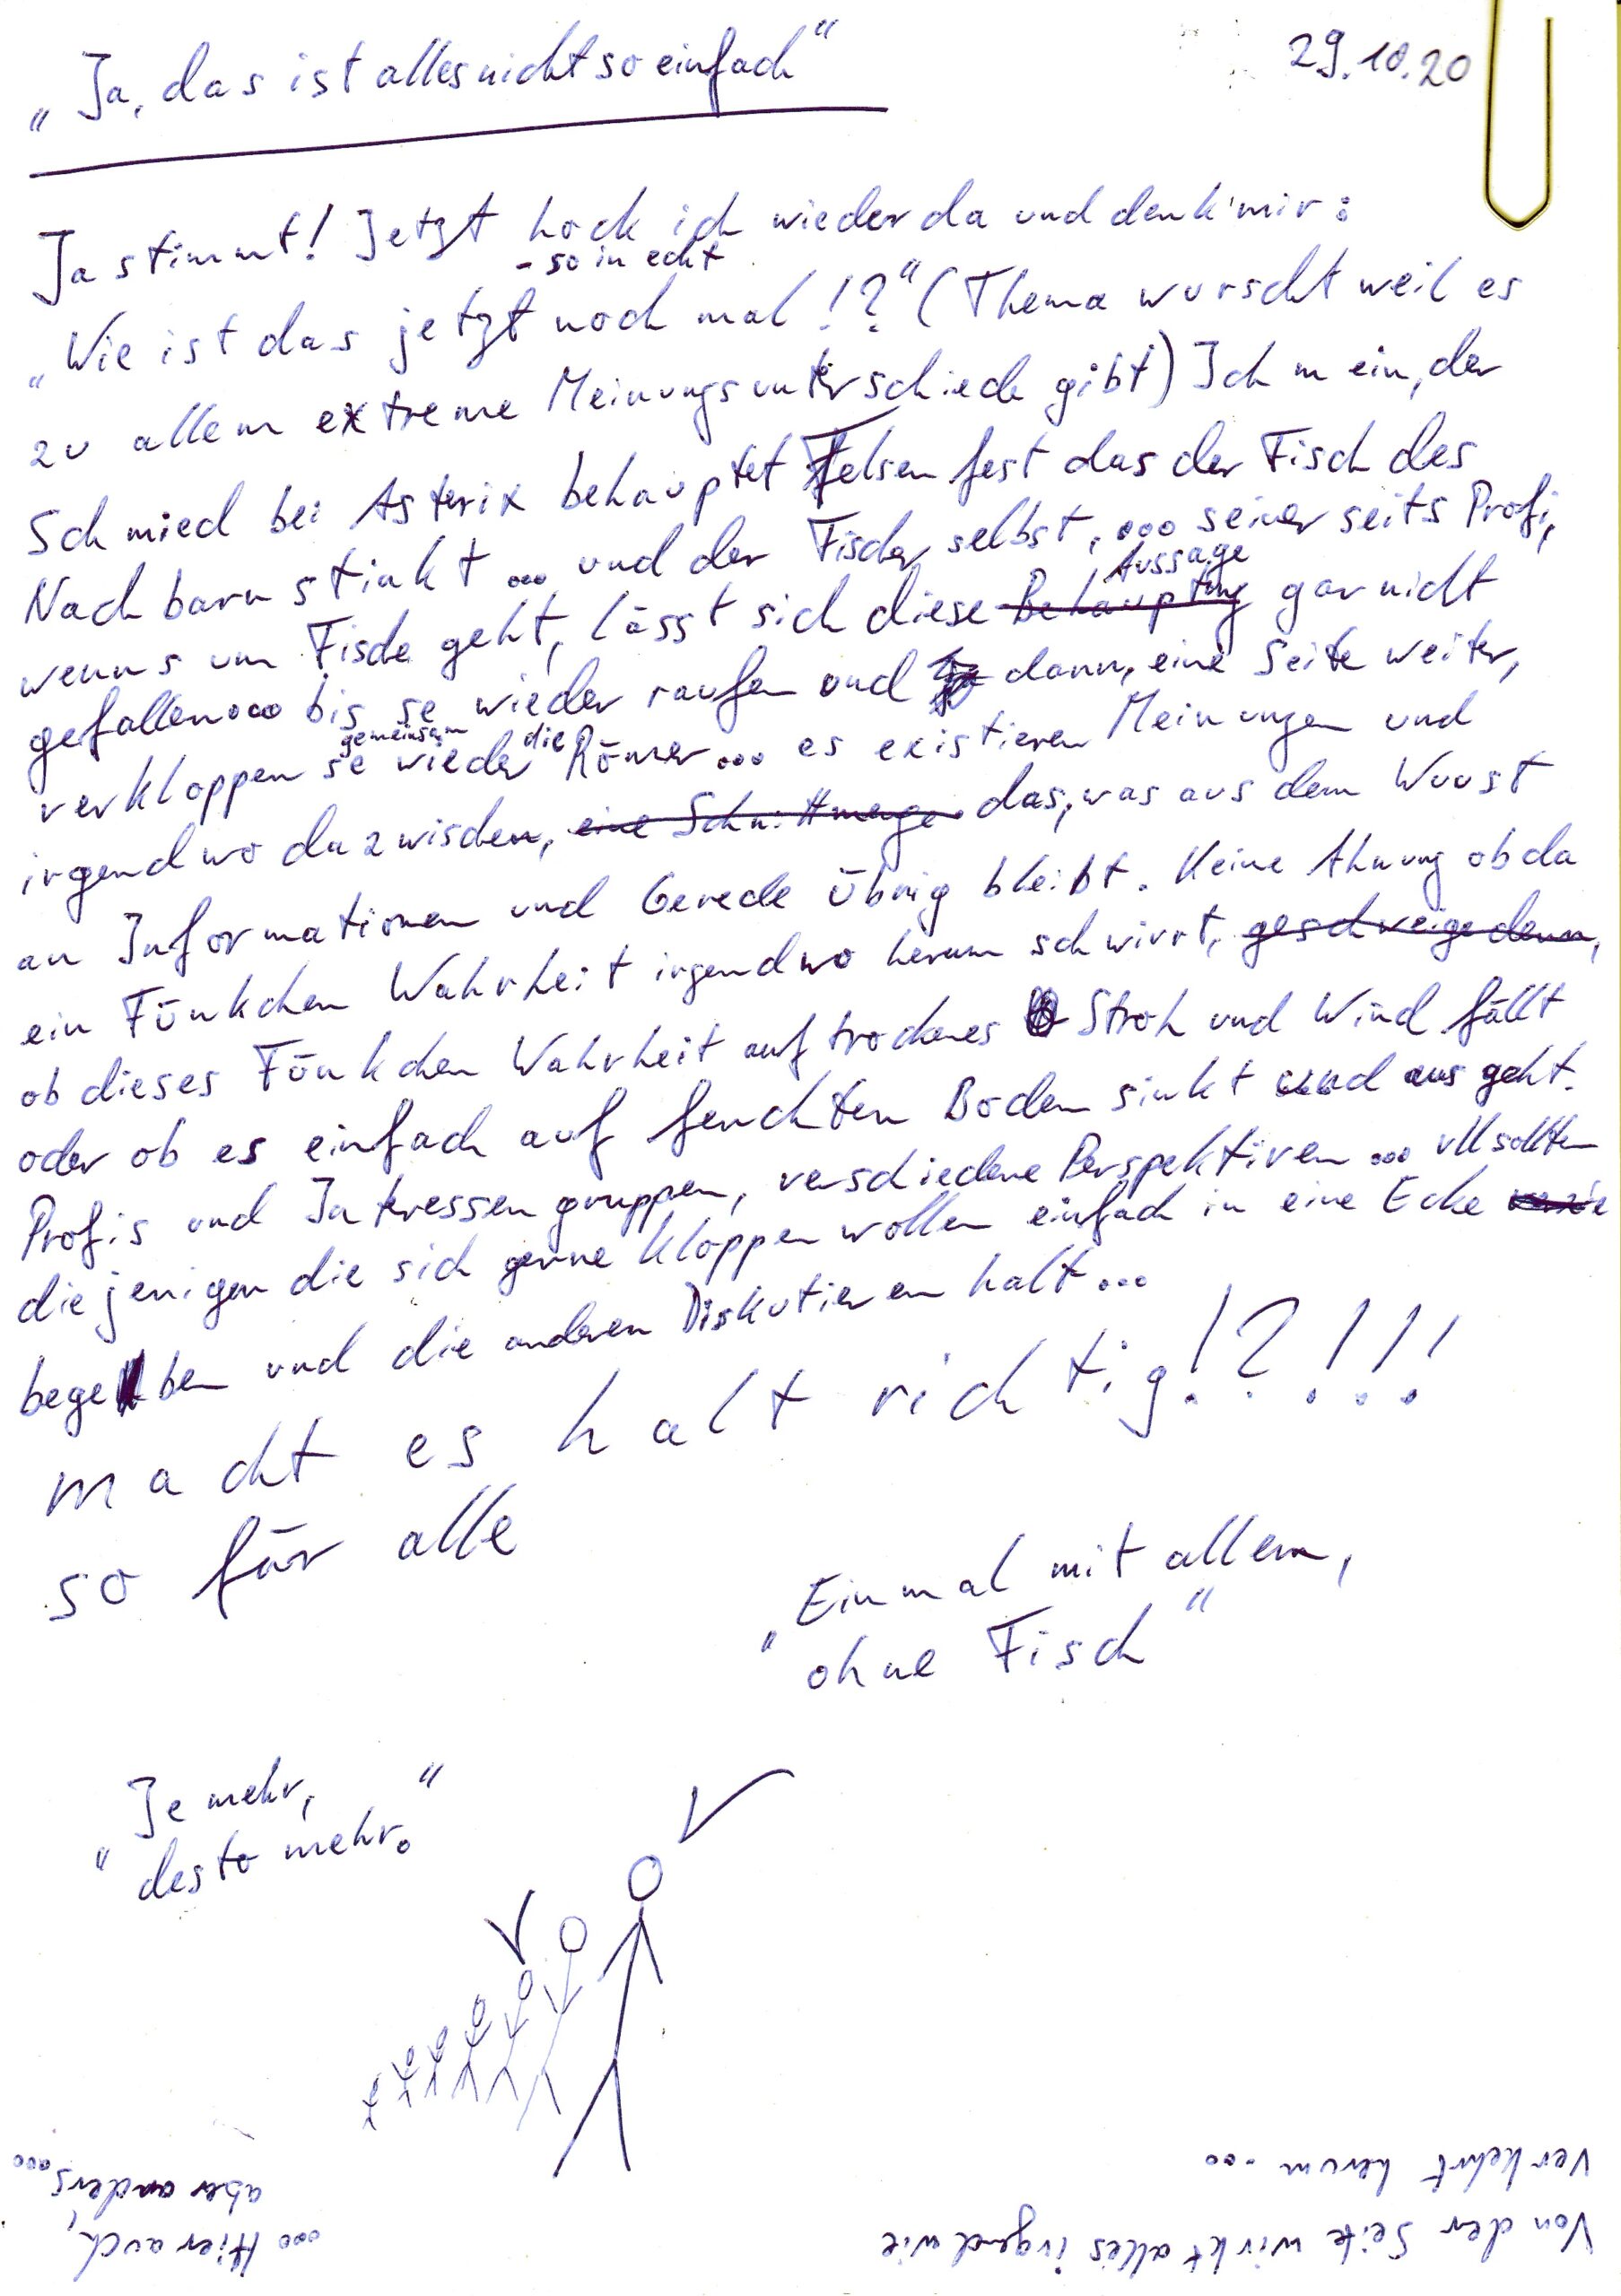 „Ja, das ist alles nicht so einfach“
29.10.20
Ja stimmt! Jetzt hock ich wieder da und denk'mir:
- so in echt
„Wie ist das jetzt noch mal!?“ (Thema wurscht weil es
zu allem extreme Meinungsunterschiede gibt) Ich mein, der
Schmied bei Asterix behauptet Felsen fest das der Fisch des
Nachbarn stinkt ... und der Fischer selbst, ... seiner seits Profi,
Aussage
wenns um Fische geht, lässt sich diese Behauptung gar nicht
gefallen... bis se wieder raufen und dann, eine Seite weiter,
gemeinsam die
verkloppen se wieder Römer... es existieren Meinungen und
irgendwo dazwischen, eine Schnittmenge das, was aus dem Wust
an Informationen und Gerede übrig bleibt. Keine Ahnung ob da
ein Fünkchen Wahrheit irgendwo herum schwirrt, geschweige denn,
ob dieses Fünkchen Wahrheit auf trockenes Stroh und Wind fällt
oder ob es einfach auf feuchten Boden sinkt und aus geht.
Profis und Interessengruppen, verschiedene Perspektiven ... vll sollten
diejenigen die sich gerne kloppen wollen einfach in eine Ecke
begeben und die anderen Diskutieren halt...
macht es halt richtig!?!!!
so für alle
„Einmal mit allem,
ohne Fisch“
„Je mehr,
desto mehr.“
Von der Seite wirkt alles irgendwie
verkehrt herum ...
... Hier auch,
aber anders...